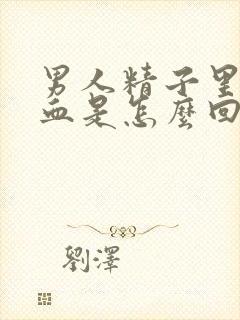 男人精子里
血是怎麼回
劉澤